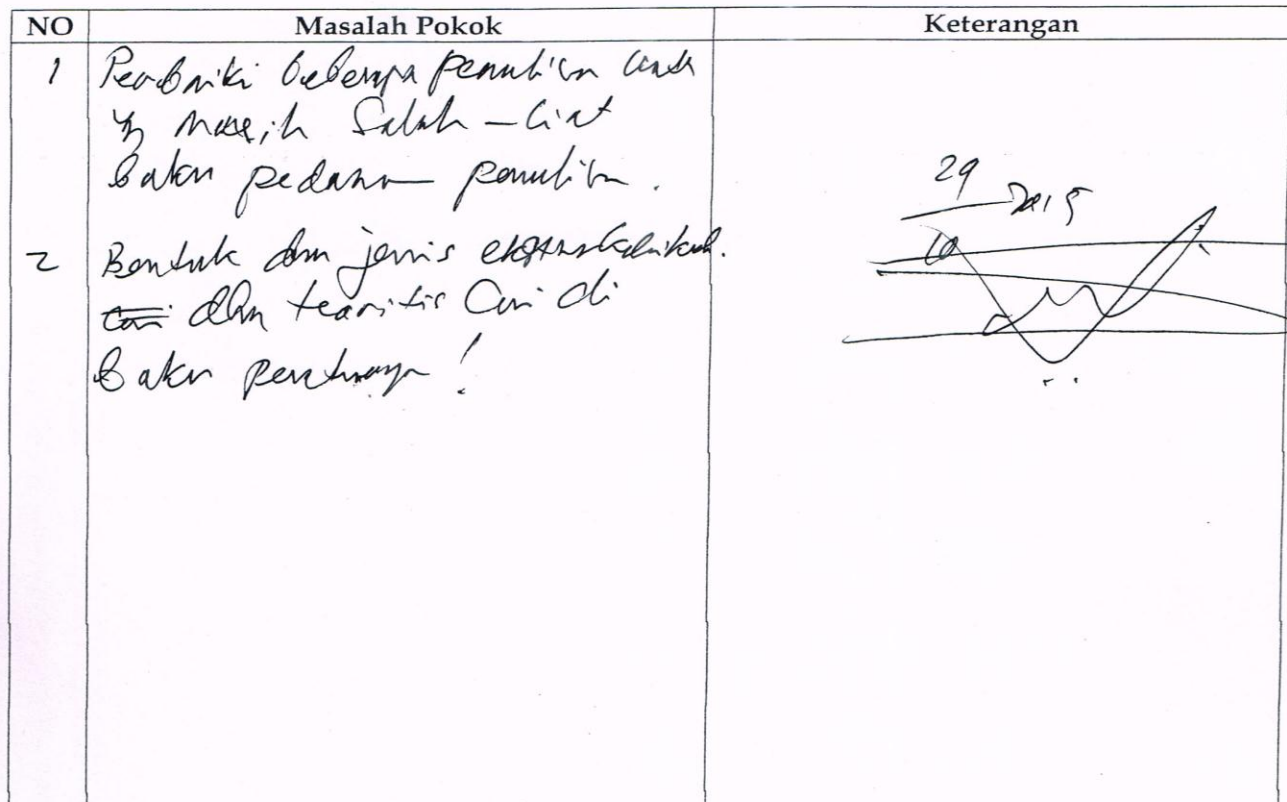 NO Masalah Pokok Keterangan
1 Perbaiki beberapa penulisan
yg masih Salah - liat
buku pedoman penulisan.
2 Bentuk dan jenis ekstrakurikuler.
dlm teoritis Cari di
buku
29
10 2015